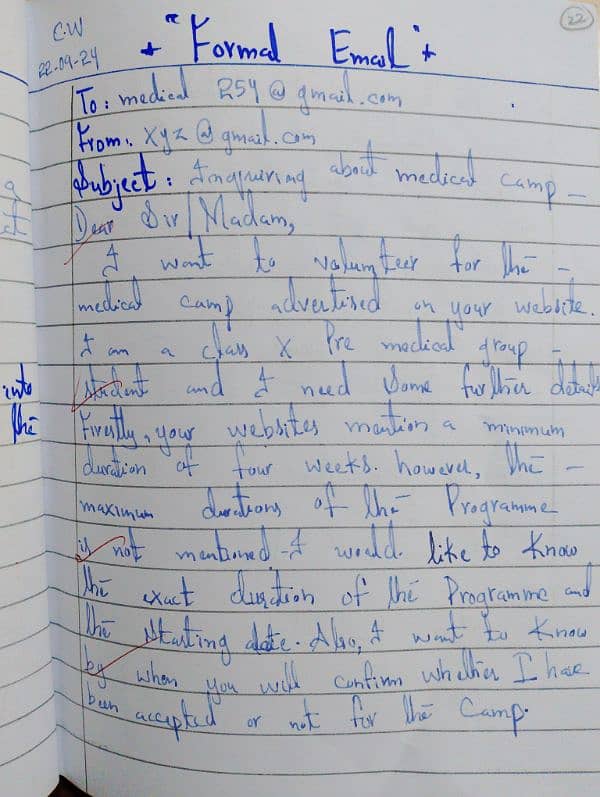 22
C.W
22-09-24
"Formal Email"
To: medical 254@gmail.com
From: xyz@gmail.com
Subject: Inquiring about medical camp -
Dear Sir/Madam,
I want to volunteer for the -
medical camp advertised on your website.
I am a class X Pre medical group -
student and I need some further details
Firstly, your websites mention a minimum
duration of four weeks. however, the -
maximum durations of the Programme
is not mentioned. I would like to know
the exact duration of the Programme and
the starting date. Also, I want to know
by when you will confirm whether I have
been accepted or not for the Camp.
into
the